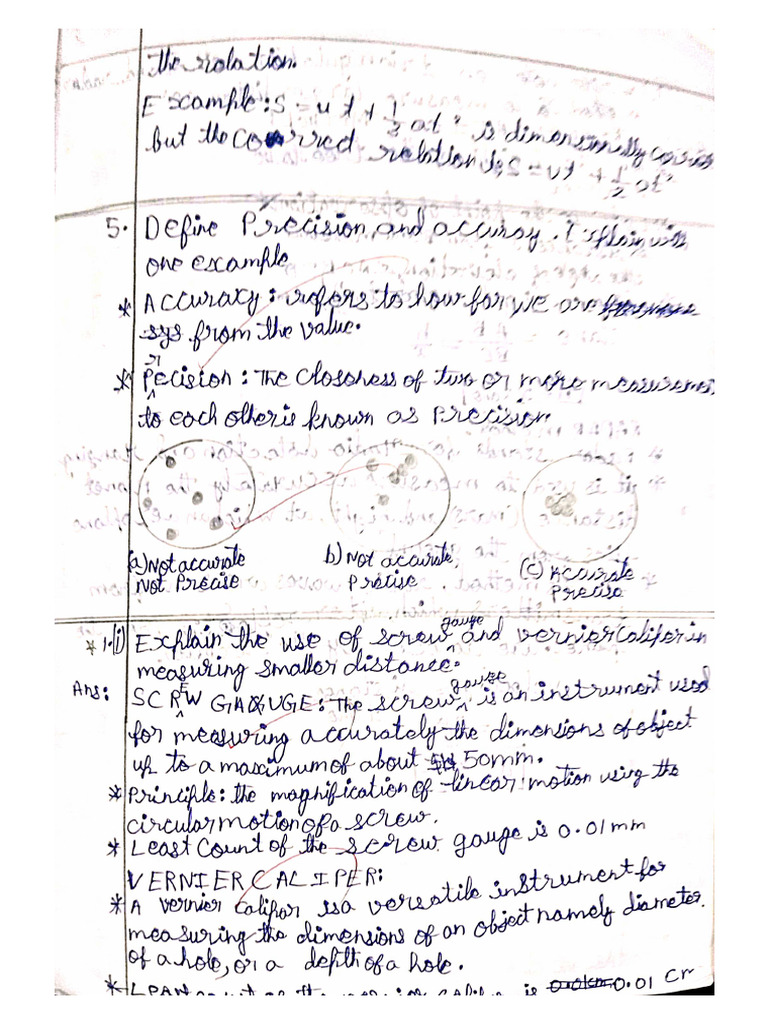 the rolation.
Example: S = ut + 1/3 at² is dimensionally correct
but the corred relation is = ut + 1/2 at²
5. Define Precision, and accuray. Explain with
one example
* Accuracy: rofers to how for we are
sys from the value.
* Precision: The closeness of two or more measurement
to each other is known as Precision.
(a) Not accurate b) Not accurate (c) Accurate
Not Precise Precise Precise
* 1.(i) Explain the use of screw gauge and vernier califer in
measuring smaller distance.
Ans: SCREW GAUGE: The screw gauge is an instrument used
for measuring accurately the dimensions of object
up to a maximum of about 50mm.
* Principle: the magnification of linear motion using the
circular motion of a screw.
* Least count of the screw gauge is 0.01 mm
VERNIER CALIPER:
* A vernier califor is a versatile instrument for
measuring the dimensions of an object namely diameter
of a hole, or a depth of a hole.
* is 0.01 cm